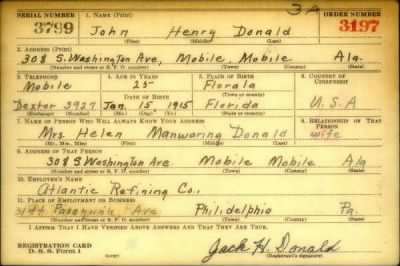 3A
SERIAL NUMBER 1. NAME (Print) ORDER NUMBER
3799 John Henry Donald 3197
(First) (Middle) (Last)
2. ADDRESS (Print)
308 S. Washington Ave, Mobile Mobile Ala.
(Number and street or R. F. D. number) (Town) (County) (State)
3. TELEPHONE 4. AGE IN YEARS 5. PLACE OF BIRTH 6. COUNTRY OF CITIZENSHIP
Mobile 25 Florala
DATE OF BIRTH (Town or county)
Dexter 3927 Jan. 15 1915 Florida U.S.A
(Exchange) (Number) (Mo.) (Day) (Yr.) (State or country)
7. NAME OF PERSON WHO WILL ALWAYS KNOW YOUR ADDRESS 8. RELATIONSHIP OF THAT PERSON
Mrs. Helen Manwaring Donald wife
(Mr., Mrs., Miss) (First) (Middle) (Last)
9. ADDRESS OF THAT PERSON
308 S Washington Ave Mobile Mobile Ala
(Number and street or R. F. D. number) (Town) (County) (State)
10. EMPLOYER'S NAME
Atlantic Refining Co.,
11. PLACE OF EMPLOYMENT OR BUSINESS
3144 Ave Philidelphia Pa.
(Number and street or R. F. D. number) (Town) (County) (State)
I AFFIRM THAT I HAVE VERIFIED ABOVE ANSWERS AND THAT THEY ARE TRUE.
REGISTRATION CARD
D. S. S. Form 1 Jack H. Donald
(Registrant's signature)